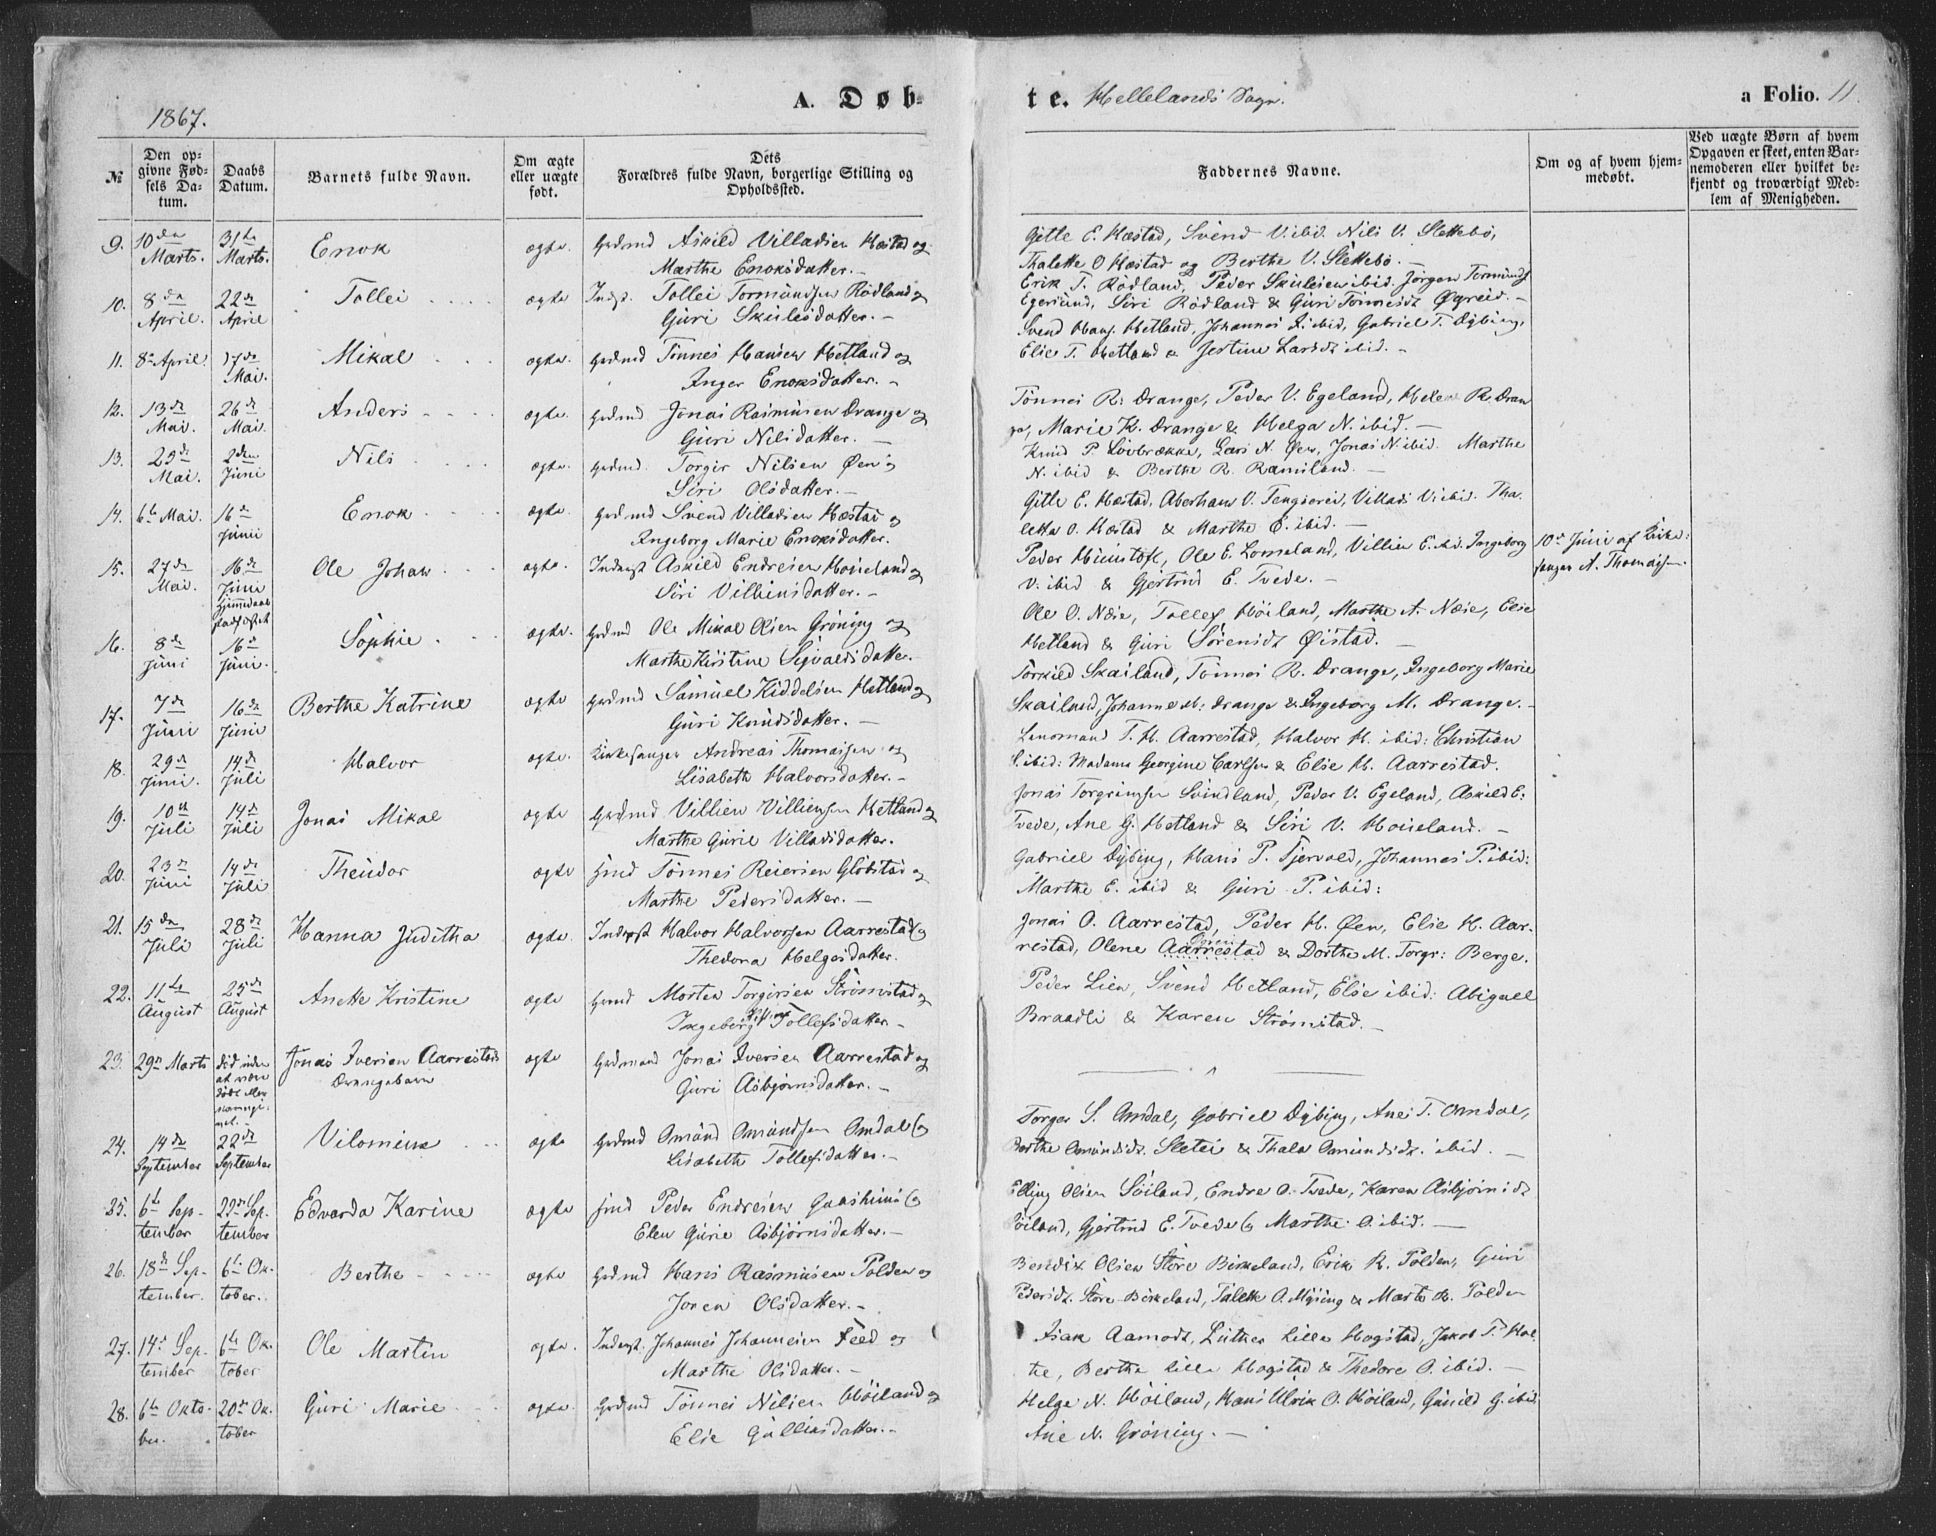 1867.
A. Døb-
te. Hellelands Sogn.
a Folio. 11.
№
Den opgivne Fødsels Datum.
Daabs Datum.
Barnets fulde Navn.
Om ægte eller uægte født.
Dets Forældres fulde Navn, borgerlige Stilling og Opholdssted.
Faddernes Navne.
Om og af hvem hjemmedøbt.
Ved uægte Børn af hvem Opgaven er skeet, enten Barnemoderen eller hvilket bekjendt og troværdigt Medlem af Menigheden.
9. 10de Marts. 31te Marts. Enok ægte. Grdmd Askild Villadsen Hæstad og
Marthe Enoksdatter.
Gitle E. Hæstad, Svend V. ibid. Nils V. Slettebö,
Thalette O Hæstad og Berthe V. Slettebö.
10. 8de April. 22de April Tollei ægte Indst. Tollei Tormundsen Rödland og
Guri Skulesdatter.
Erik T. Rödland, Peder Skulesen ibid. Jörgen Tormunds
Egersund, Siri Rödland & Guri Tönnesdt Øgreid.
11. 8de April. 17de Mai. Mikal ægte. Grdmd Tönnes Hansen Hetland og
Inger Enoksdatter.
Svend Hans. Hetland, Johannes ibid, Gabriel T. Dybing,
Elie T. Hetland & Jestine Larsdt ibid.
12. 13de Mai. 26de Mai. Anders ægte. Grdmd Jonas Rasmusen Drange og
Guri Nilsdatter.
Tönnes R. Drange, Peder V. Egeland, Helene R. Dran
ge, Marie K. Drange & Helga N. ibid.
13. 25de Mai. 2den Juni Nils ægte. Grdmd. Torgir Nilsen Øen og
Siri Olsdatter.
Knud P. Lövbrække, Lars N. Øen, Jonas N. ibid. Marthe
N. ibid & Berthe R. Ramsland.
14. 6te Mai. 16de Juni Enok ægte. Grdmd Svend Villadsen Hæstad og
Ingeborg Marie Enoksdatter.
Gitle E. Hæstad, Aberham V. Tengsereid, Villads V. ibid. Tha-
lette O. Hæstad & Marthe E. ibid.
15. 27de Mai. 16de Juni Ole Johan ægte. Inderst Askild Endresen Hoiseland og
Siri Villiensdatter.
Peder Ole E. Lomeland, Villien E. ibid. Ingeborg
V. ibid & Gjertrud E. Tvede.
10de Juni af Kirke-
sanger A. Thomassen.
16. 8de Juni 16de Juni. Sophie ægte. Grdmd Ole Mikal Olsen Gröning og
Marthe Kirstine Sigvaldsdatter.
Ole O. Næse, Tollef Höiland, Marthe A. Næse, Elise
Hetland & Guri Sörensdt Øistad.
17. 7de Juni 16de Juni Berthe Katrine ægte Grdmd Samuel Kiddelsen Hetland og
Guri Knudsdatter.
Torkild Skailand, Tönnes R. Drange, Ingeborg Marie
Skailand, Johanne M. Drange & Ingeborg M. Drange.
18. 29de Juni. 14de Juli Halvor ægte. Kirkesanger Andreas Thomassen og
Lisabeth Halvorsdatter.
Lensmand T. H. Aarrestad, Halvor H. ibid: Christian
ibid: Madame Georgine Carlsen & Elise H. Aarrestad.
19. 10de Juli 14de Juli Jonas Mikal ægte Grdmd Villien Villiensen Hetland og
Marthe Gurie Villadsdatter.
Jonas Torgrimsen Svindland, Peder V. Egeland, Askild E:
Tvede, Ane G. Hetland & Siri V. Hoiseland.
20. 23de Juni 14de Juli Theodor ægte Tönnes Reiersen Glöbstad og
Marthe Pedersdatter.
Gabriel Dybing, Hans P. Tjorvold, Johannes P. ibid:
Marthe E. ibid & Guri P. ibid:
21. 15de Juli 28de Juli Hanna Juditha ægte. Inderst Halvor Halvorsen Aarrestad og
Thedora Helgesdatter.
Jonas O. Aarrestad, Peder H. Øen, Elise H. Aar-
restad, Olene Aarrestad & Dorthe M. Torgr: Berge.
22. 11te August 25de August Anette Kristine ægte Grmd Morten Torgirsen Strömstad og
Ingeborg Tollefsdatter.
Peder Lien, Svend Hetland, Elise ibid: Abigael
Braadli & Karen Strömstad.
23. 29de Marts död uden at være döbt eller navngivet. Jonas Iversen Aarrestads
Drengebarn ægte Grdmand Jonas Iversen Aarrestad og
Guri Asbjörnsdatter.
24. 14de September 22de September Vilomine ægte Grdmd Omund Omundsen Omdal og
Lisabeth Tollefsdatter.
Torger S. Omdal, Gabriel Dybing, Ane T. Omdal,
Berthe Omundsdt. Sletei & Thala Omundsdt. ibid.
25. 6te September 22de September Edvarda Karine ægte Peder Endresen og
Elen Gurie Asbjörnsdatter.
Elling Olsen Söiland, Endre O. Tvede, Karen Asbjörnsdt
Söiland, Gjertrud E. Tvede og Marthe O. ibid.
26. 18de September. 6te Oktober. Berthe ægte Grdmd Hans Rasmusen Polden og
Joren Olsdatter.
Bendix Olsen Store Birkeland, Erik R. Polden, Guri
Pedersdt. Store Birkeland, Talette O. Mysing & Marte R. Polden
27. 14de September 6te Oktober Ole Martin ægte. Inderst. Johannes Johannesen Feed og
Marthe Olsdatter.
Isak Aamodt, Luther Lille Hogstad, Jakob T. Hol
te, Berthe Lille Hogstad & Thedore O. ibid.
28. 6te Oktober. 20de Oktober Guri Marie ægte. Grdmd Tönnes Nilsen Höiland og
Elie Gulliksdatter.
Helge N. Höiland, Hans Ulrik O. Höiland, Gunild G. ibid.
Ane N. Gröning.